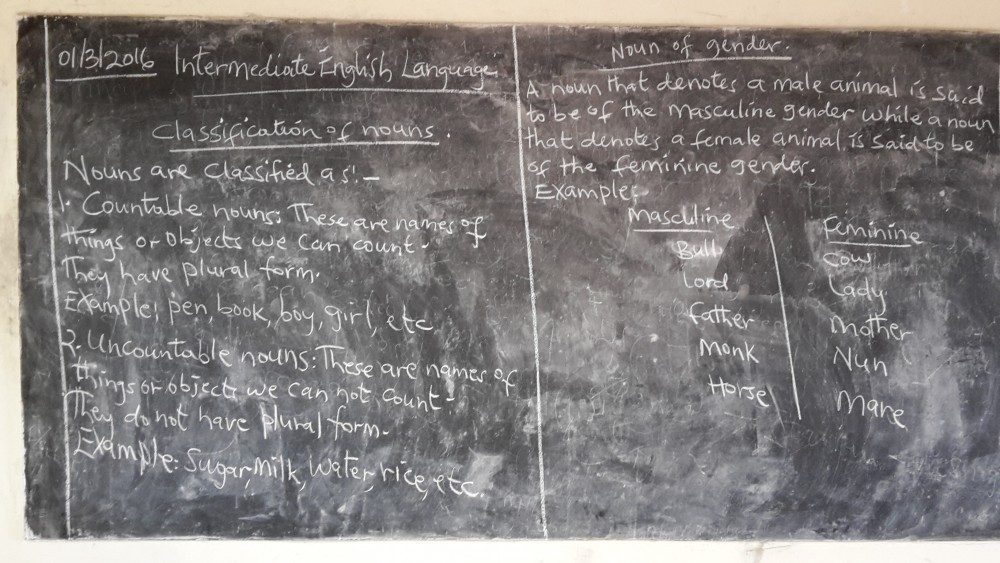 01/3/2016 Intermediate English Language
Classification of nouns.
Nouns are classified as:-
1. Countable nouns: These are names of
things or objects we can count-
They have plural form.
Example: pen, book, boy, girl, etc
2. Uncountable nouns: These are names of
things or objects we can not count-
They do not have plural form.
Example: Sugar, milk, water, rice, etc.
Noun of gender.
A noun that denotes a male animal is said
to be of the masculine gender while a noun
that denotes a female animal is said to be
of the feminine gender.
Example:
Masculine Feminine
Bull Cow
Lord Lady
Father Mother
Monk Nun
Horse Mare